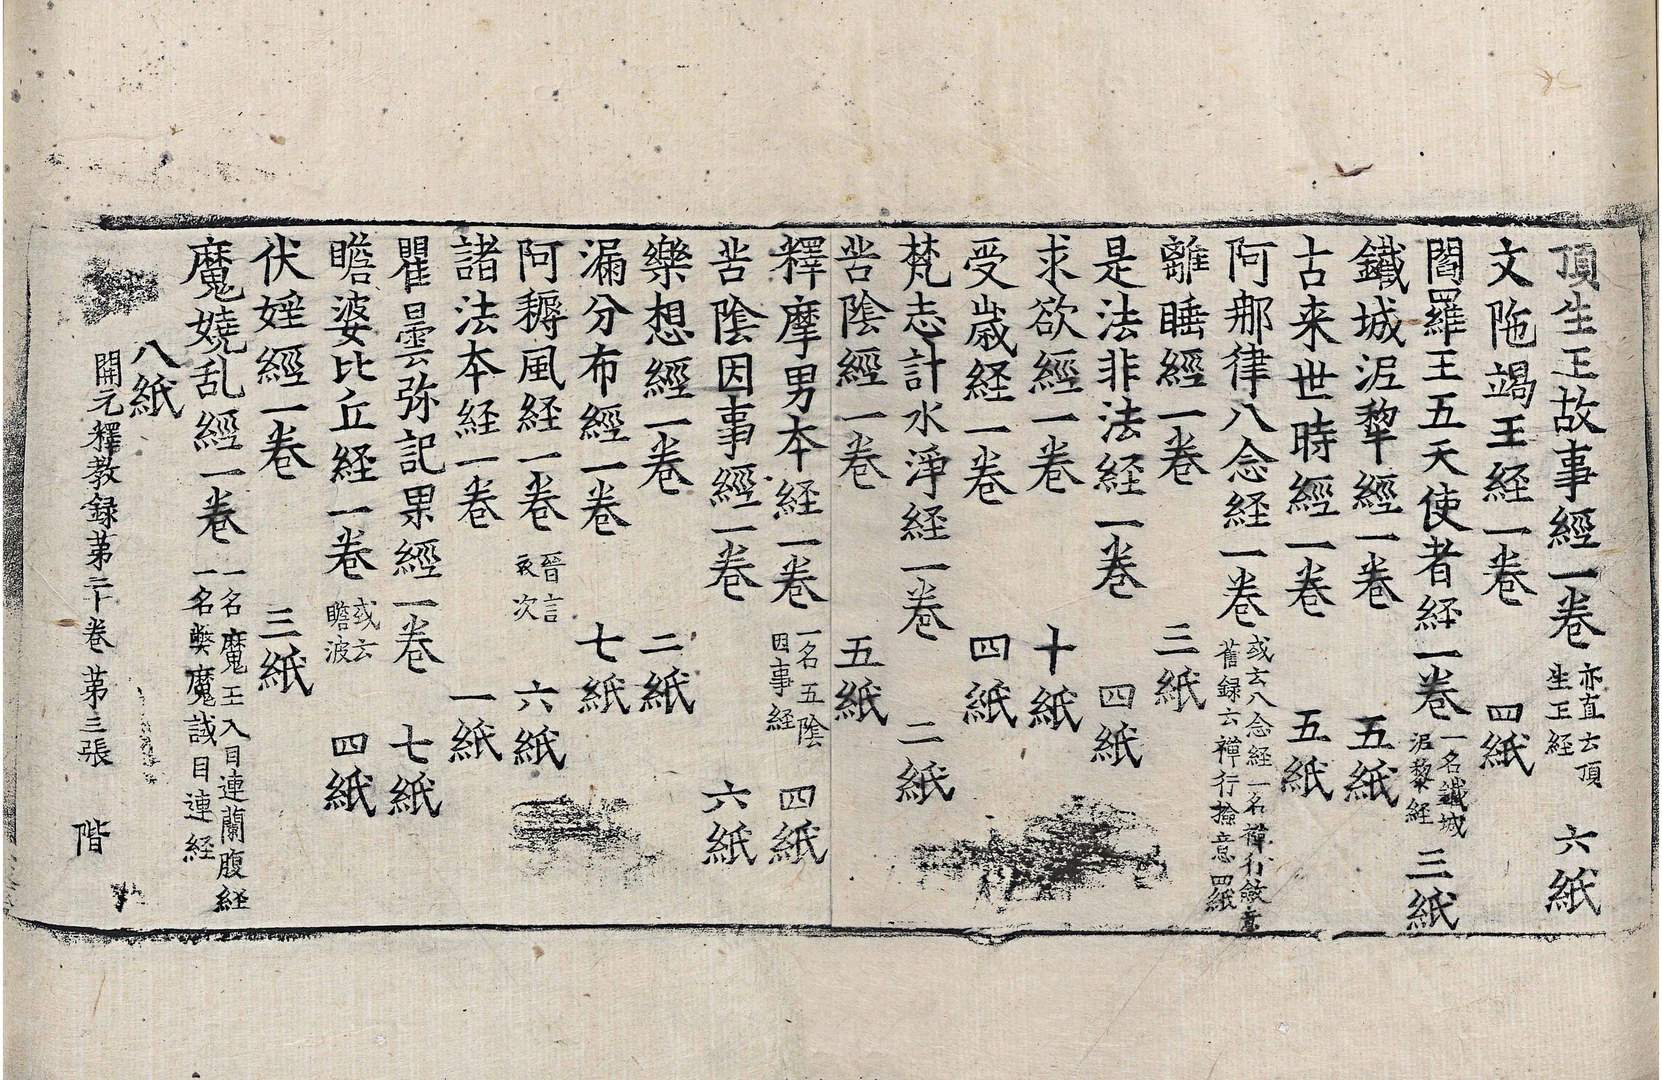 頂生王故事經一卷 亦直云頂生王經 六紙
文陁竭王経一卷 四紙
閻羅王五天使者経一卷 一名鐵城泥黎経 三紙
鐵城泥犂經一卷 五紙
古来世時經一卷 五紙
阿那律八念經一卷 或云八念経一名禪行斂意舊録云禪行撿意 四紙
離睡經一卷 三紙
是法非法経一卷 四紙
求欲經一卷 十紙
受歳経一卷 四紙
梵志計水淨経一卷 二紙
苦陰經一卷 五紙
釋摩男本経一卷 一名五陰因事経 四紙
苦陰因事經一卷 六紙
樂想經一卷 二紙
漏分布經一卷 七紙
阿耨風経一卷 晉言依次 六紙
諸法本経一卷 一紙
瞿曇弥記果經一卷 七紙
瞻婆比丘経一卷 或云瞻波 四紙
伏婬經一卷 三紙
魔嬈乱經一卷 一名魔王入目連蘭腹経一名弊魔試目連経
八紙
開元釋教録苐二十卷 苐三張 階